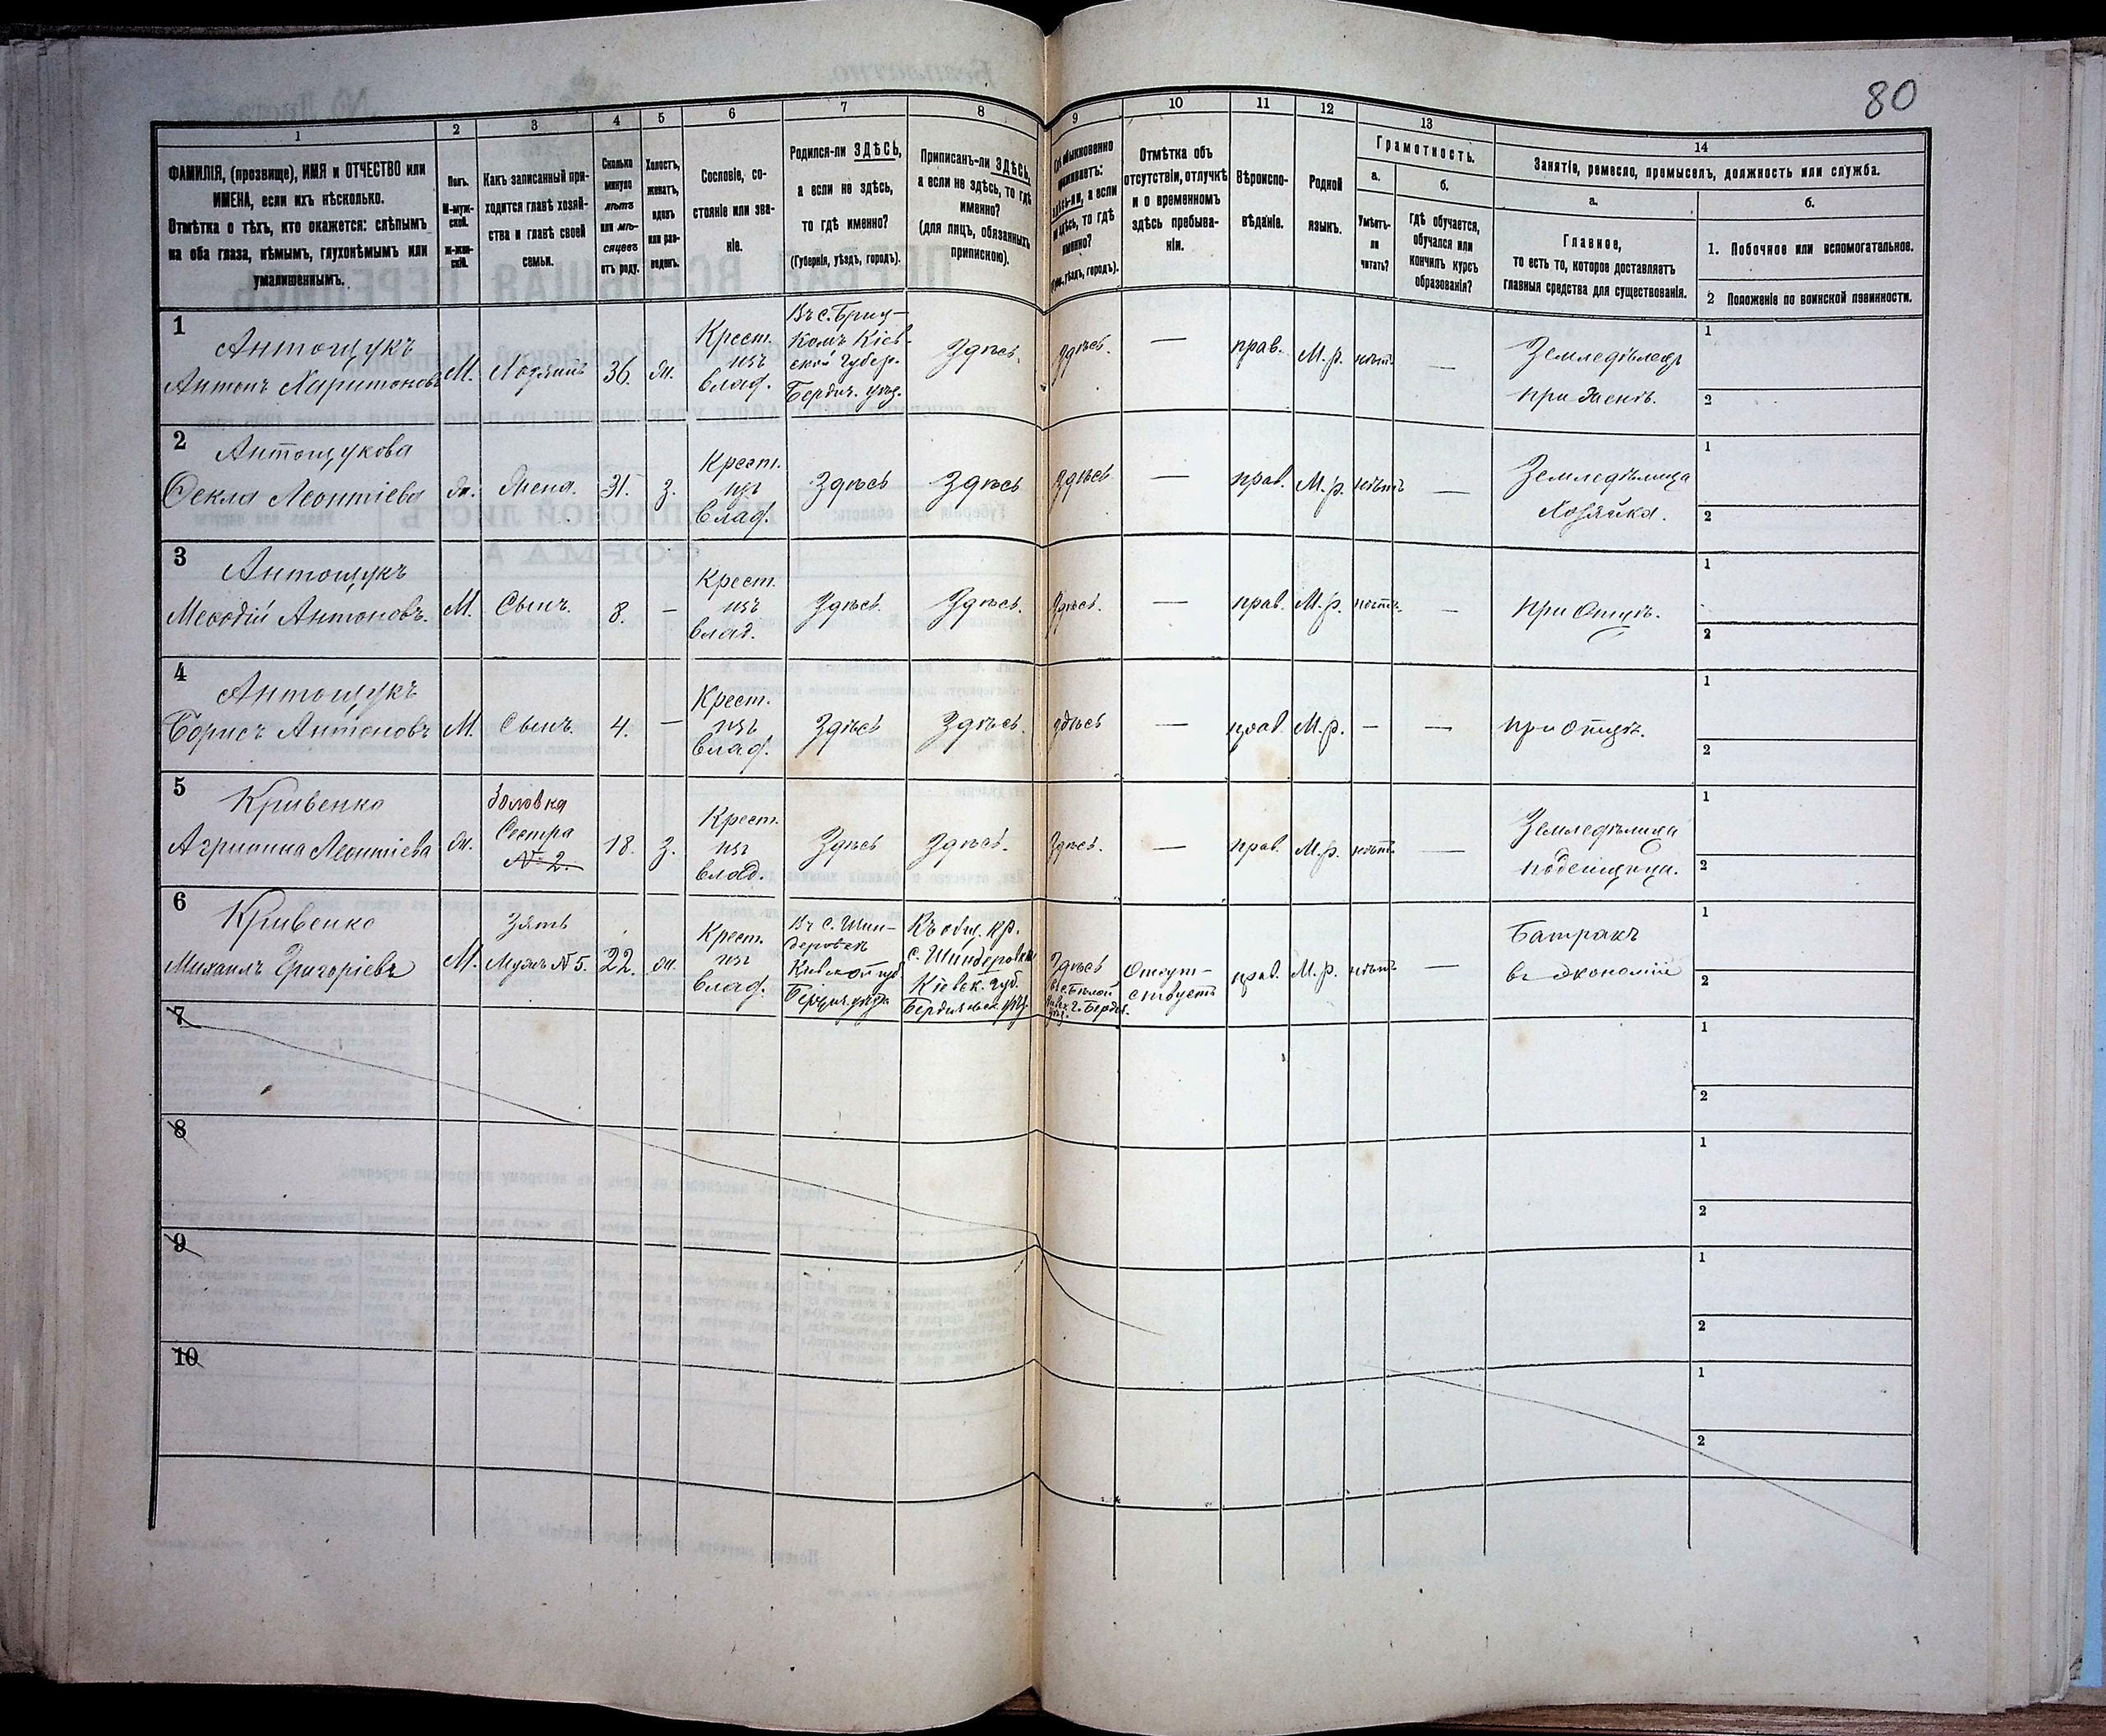 80
1
2
3
4
5
6
7
8
9
10
11
12
13
14
ФАМИЛІЯ, (прозвище), ИМЯ и ОТЧЕСТВО или
ИМЕНА, если ихъ нѣсколько.
Отмѣтка о тѣхъ, кто окажется: слѣпымъ
на оба глаза, нѣмымъ, глухонѣмымъ или
умалишеннымъ.
Полъ.
М-муж-
ской.
Ж-жен-
скій.
Какъ записанный при-
ходится главѣ хозяй-
ства и главѣ своей
семьи.
Сколько
минуло
лѣтъ
или мѣ-
сяцевъ
отъ роду.
Холостъ,
женатъ,
вдовъ
или раз-
веденъ.
Сословіе, со-
стояніе или зва-
ніе.
Родился-ли ЗДѢСЬ,
а если не здѣсь,
то гдѣ именно?
(Губернія, уѣздъ, городъ).
Приписанъ-ли ЗДѢСЬ,
а если не здѣсь, то гдѣ
именно?
(для лицъ, обязанныхъ
припискою).
обыкновенно
проживаетъ:
здѣсь-ли, а если
не здѣсь, то гдѣ
именно?
уѣздъ, городъ).
Отмѣтка объ
отсутствіи, отлучкѣ
и о временномъ
здѣсь пребыва-
ніи.
Вѣроиспо-
вѣданіе.
Родной
языкъ.
Грамотность.
а.
Умѣетъ-
ли
читать?
б.
гдѣ обучается,
обучался или
кончилъ курсъ
образованія?
Занятіе, ремесло, промыселъ, должность или служба.
а.
Главное,
то есть то, которое доставляетъ
главныя средства для существованія.
б.
1. Побочное или вспомогательное.
2 Положеніе по воинской повинности.
1
Антощукъ
Антонъ Харитоновъ
М.
Хозяинъ
36.
ж.
Крест.
изъ
влад.
Въ с. Бриц-
комъ Кіев-
ской губер.
Бердич. уѣз.
Здѣсь.
Здѣсь.
—
прав.
М. р.
нѣтъ
—
Земледѣлецъ
при женѣ.
1
2
2
Антощукова
Ѳекла Леонтіева
ж.
Жена.
31.
з.
Крест.
изъ
влад.
Здѣсь
Здѣсь
Здѣсь
—
прав.
М. р.
нѣтъ
—
Земледѣлица
Хозяйка.
1
2
3
Антощукъ
Меѳодій Антоновъ.
М.
Сынъ.
8.
—
Крест.
изъ
влад.
Здѣсь.
Здѣсь.
Здѣсь.
—
прав.
М. р.
нѣтъ.
—
при Отцѣ.
1
2
4
Антощукъ
Борисъ Антоновъ
М.
Сынъ.
4.
—
Крест.
изъ
влад.
Здѣсь
Здѣсь.
здѣсь
—
прав.
М. р.
—
—
при Отцѣ.
1
2
5
Кривенко
Агрипина Леонтіева
ж.
Золовка
Сестра
№ 2.
18.
з.
Крест.
изъ
влад.
Здѣсь
Здѣсь.
Здѣсь.
—
прав.
М. р.
нѣтъ.
—
Земледѣлица
поденщица.
1
2
6
Кривенко
Михаилъ Григоріевъ
М.
Зять
Мужъ № 5.
22.
ж.
Крест.
изъ
влад.
Въ с. Шин-
деровкѣ
Кіевской губ.
Къ общ. кр.
с. Шиндеровки
Кіевск. губ.
Здѣсь
Отсут-
ствуетъ
прав.
М. р.
нѣтъ
—
Батракъ
въ экономіи
1
2
7
1
2
8
1
2
9
1
2
10
1
2